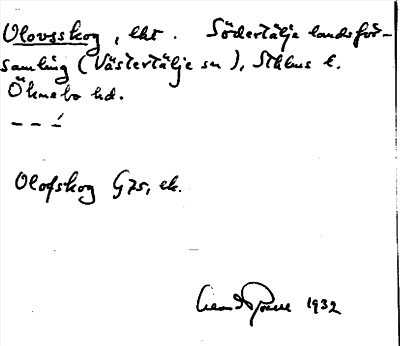 Olovsskog, lht. Södertälje landsför-
samling (Västertälje sn), Sthlms l.
Öknebo hd.
– – –́
Olofskog G75, ek.
1932